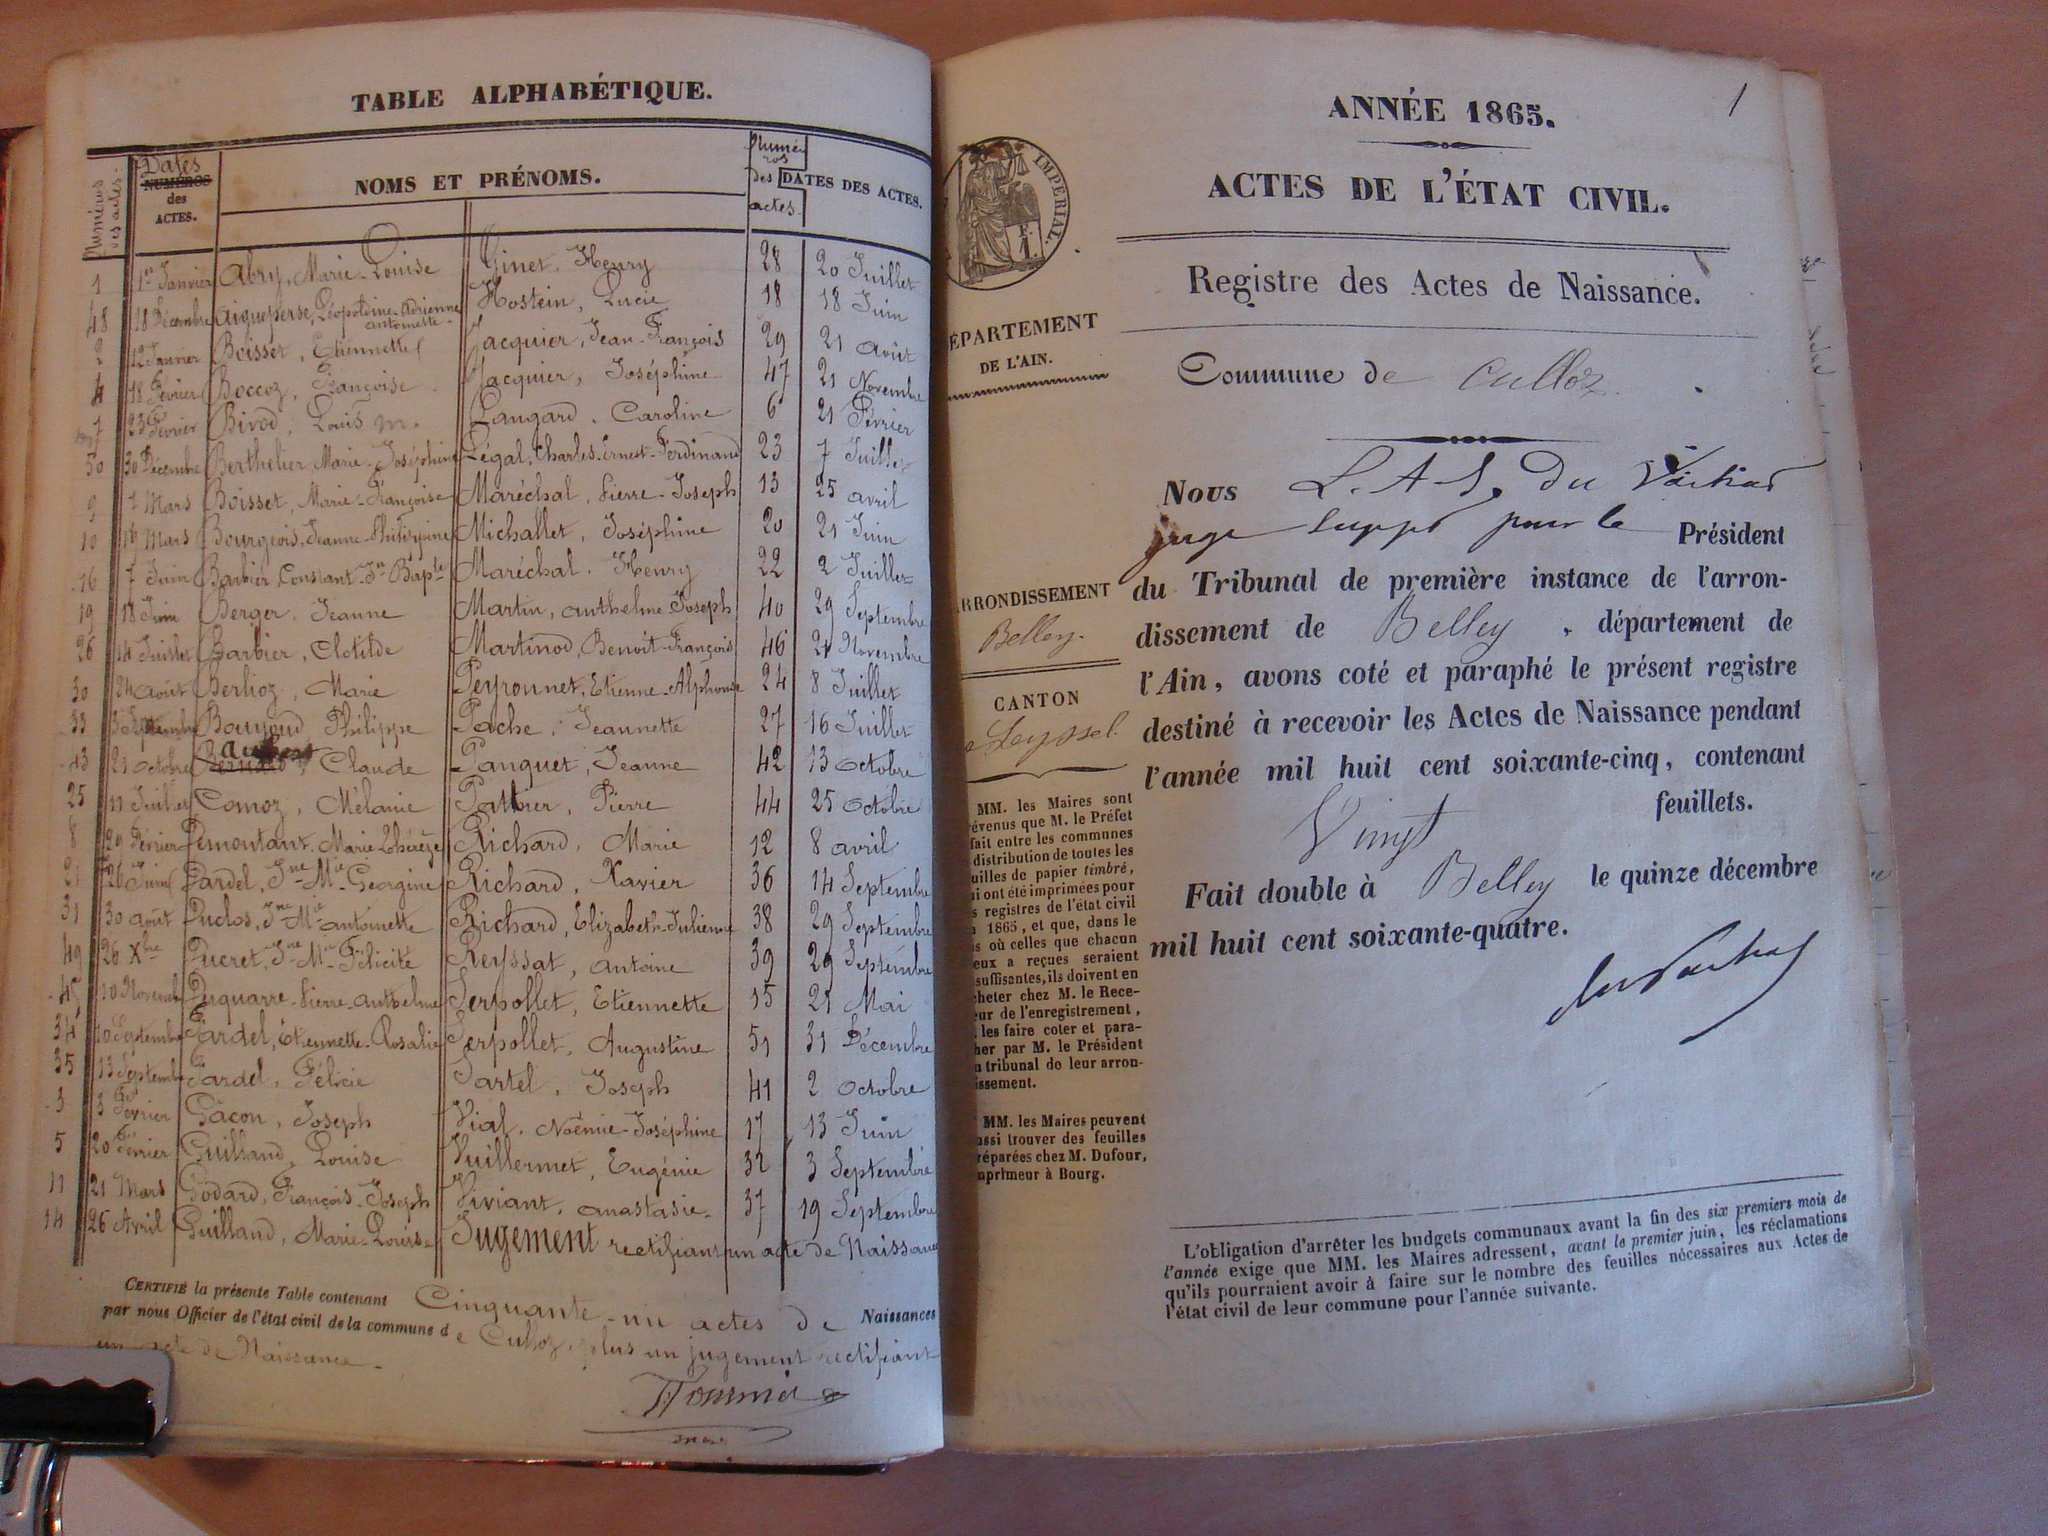 TABLE ALPHABÉTIQUE.
Numéros des actes.
Dates
NUMÉROS
des
ACTES.
NOMS ET PRÉNOMS.
Numéros
des
actes.
DATES DES ACTES.
1 1er Janvier Abry, Marie-Louise
48 18 Décembre Aigueperse, Léopoldine-Adrienne antoinette
2 12 Janvier Boisset, Etiennette
4 18 Février Boccoz, Françoise
7 23 Février Birod, Louis m.
50 30 Décembre Berthelier, Marie-Joséphine
9 7 Mars Boisset, Marie-Françoise
10 16 Mars Bourgeois, Jeanne-Philippine
16 7 Juin Barbier, Constant-Jn-Bapte
19 18 Juin Berger, Jeanne
26 14 Juillet Barbier, Clotilde
30 24 août Berlioz, Marie
33 3 Septembre Philippe
43 21 octobre Bernard Aubert, Claude
25 11 Juillet Comoz, Mélanie
8 29 Février Demontant, Marie-Thérèze
21 26 Juin Dardel, Jne-Mie-Georgine
31 30 août Duclos, Jne-Mie-antoinette
49 26 Xbre Ducret, Jne-Mie-Félicité
45 10 Novembre Duquarre-Pierre-anthelme
34 10 Septembre Fardel, Etiennette-Rosalie
35 13 Septembre Fardel, Félicie
3 3 Février Gâcon, Joseph
5 20 Février Guilland, Louise
11 21 Mars Godard, François-Joseph
14 26 Avril Guilland, Marie-Louise
Ginet, Henry 28 20 Juillet
Hostein, Lucie 18 18 Juin
Jacquier, Jean-François 29 21 août
Jacquier, Joséphine 47 21 Novembre
Langard, Caroline 6 21 Février
Légal, Charles-Ernest-Ferdinand 23 7 Juillet
Maréchal, Pierre-Joseph 13 25 avril
Michallet, Joséphine 20 21 Juin
Maréchal, Henry 22 2 Juillet
Martin, anthelme Joseph 40 29 Septembre
Martinod, Benoit-François 46 21 Novembre
Peyronnet, Etienne-Alphonse 24 8 Juillet
Pache, Jeannette 27 16 Juillet
Panguet, Jeanne 42 13 octobre
Pierre 44 25 octobre
Richard, Marie 12 8 avril
Richard, Xavier 36 14 Septembre
Richard, Elizabeth-Julienne 38 29 Septembre
Reyssat, antoine 39 29 Septembre
Serpollet, Etiennette 15 21 Mai
Serpollet, Augustine 51 31 Décembre
Sartel, Joseph 41 2 octobre
Vial, Noëmie-Joséphine 17 13 Juin
Vuillermet, Eugénie 32 3 Septembre
Viviant, anastasie 37 19 Septembre
Jugement rectifiant un acte de Naissance
CERTIFIÉ la présente Table contenant Cinquante-un actes de Naissances
par nous Officier de l'état civil de la commune de Culloz, plus un jugement rectifiant
un acte de Naissance.
1
ANNÉE 1865.
ACTES DE L'ÉTAT CIVIL.
IMPÉRIAL.
Registre des Actes de Naissance.
DÉPARTEMENT
DE L'AIN.
Commune de Culloz
Nous L. A. S. Du
juge suppt pour le Président
du Tribunal de première instance de l'arron-
dissement de Belley, département de
l'Ain, avons coté et paraphé le présent registre
destiné à recevoir les Actes de Naissance pendant
l'année mil huit cent soixante-cinq, contenant
Vingt feuillets.
Fait double à Belley le quinze décembre
mil huit cent soixante-quatre.
ARRONDISSEMENT
Belley.
CANTON
Seyssel.
MM. les Maires sont
prévenus que M. le Préfet
fait entre les communes
distribution de toutes les
feuilles de papier timbré,
qui ont été imprimées pour
les registres de l'état civil
1865, et que, dans le
cas où celles que chacun
d'eux a reçues seraient
insuffisantes, ils doivent en
acheter chez M. le Rece-
veur de l'enregistrement,
les faire coter et para-
pher par M. le Président
du tribunal de leur arron-
dissement.
MM. les Maires peuvent
aussi trouver des feuilles
préparées chez M. Dufour,
imprimeur à Bourg.
L'obligation d'arrêter les budgets communaux avant la fin des six premiers mois de
l'année exige que MM. les Maires adressent, avant le premier juin, les réclamations
qu'ils pourraient avoir à faire sur le nombre des feuilles nécessaires aux Actes de
l'état civil de leur commune pour l'année suivante.